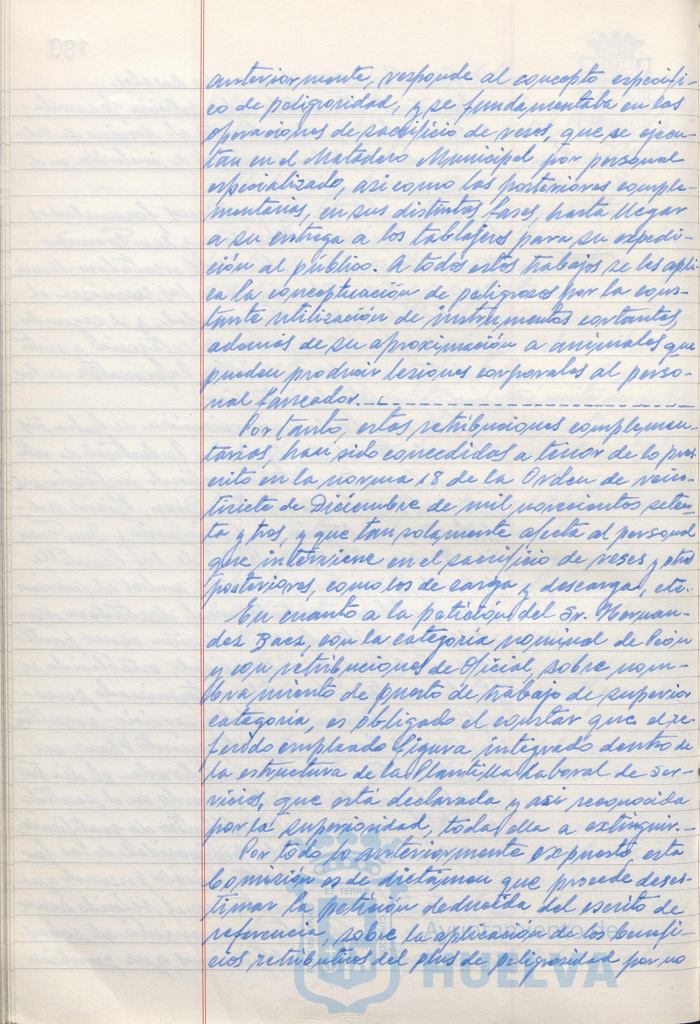 anteriormente, responde al concepto específi-
co de peligrosidad, y se fundamentaba en las
operaciones de sacrificio de reses, que se ejecu-
tan en el Matadero Municipal por personal
especializado, así como las posteriores comple-
mentarias, en sus distintas fases, hasta llegar
a su entrega a los tablajeros para su expedi-
ción al público. A todos estos trabajos se les apli
ca la conceptuación de peligrosos por la cons-
tante utilización de instrumentos cortantes,
además de su aproximación a animales que
pueden producir lesiones corporales al perso-
nal faenador.
Por tanto, estas retribuciones complemen-
tarias, han sido concedidas a tenor de lo pres
crito en la norma 18 de la Orden de vein-
tisiete de Diciembre de mil novecientos seten-
ta y tres, y que tan solamente afecta al personal
que interviene en el sacrificio de reses y otros
posteriores, como los de carga y descarga, etc.
En cuanto a la petición del Sr. Hernan-
dez Baez, con la categoría nominal de Peón
y con retribuciones de Oficial, sobre nom-
bramiento de puesto de trabajo de superior
categoría, es obligado el constar que el re-
ferido empleado figura integrado dentro de
la estructura de la Plantilla Laboral de Ser-
vicios, que está declarada y así reconocida
por la superioridad, toda ella a extinguir.-
Por todo lo anteriormente expuesto, esta
Comisión es de dictámen que procede deses-
timar la petición deducida del escrito de
referencia, sobre la aplicación de los benefi-
cios retributivos del plus de peligrosidad por no
Ayuntamiento de
HUELVA